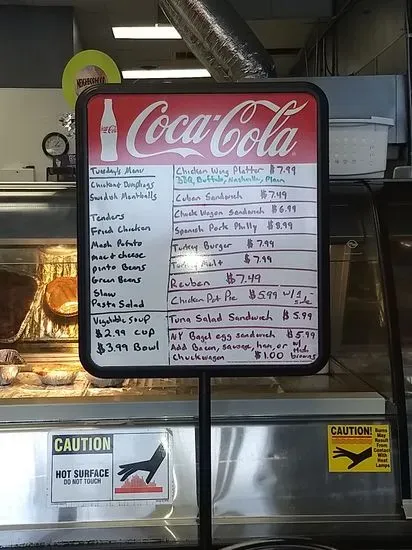 NEIGHBORHOOD
Coca-Cola
Tuesday's Menu
Chicken + Dumplings
Swedish Meatballs
Tenders
Fried Chicken
Mash Potato
mac + cheese
pinto Beans
Green Beans
Slaw
Pasta Salad
Vegetable Soup
$2.99 cup
$3.99 Bowl
Chicken Wing Platter $7.99
BBQ, Buffalo, Nashville, Plain
Cuban Sandwich $7.49
Chuck Wagon Sandwich $6.99
Spanish Pork Philly $8.99
Turkey Burger $7.99
Turkey Melt $7.99
Reuben $7.49
Chicken Pot Pie $5.99 w/ 1 side
Tuna Salad Sandwich $5.99
NY Bagel egg sandwich $5.99
Add Bacon, sausage, ham, or w/ hash browns
Chuckwagon $1.00
CAUTION
HOT SURFACE
DO NOT TOUCH
CAUTION!
Burns
May
Result
From
Contact
With
Heat
Lamps